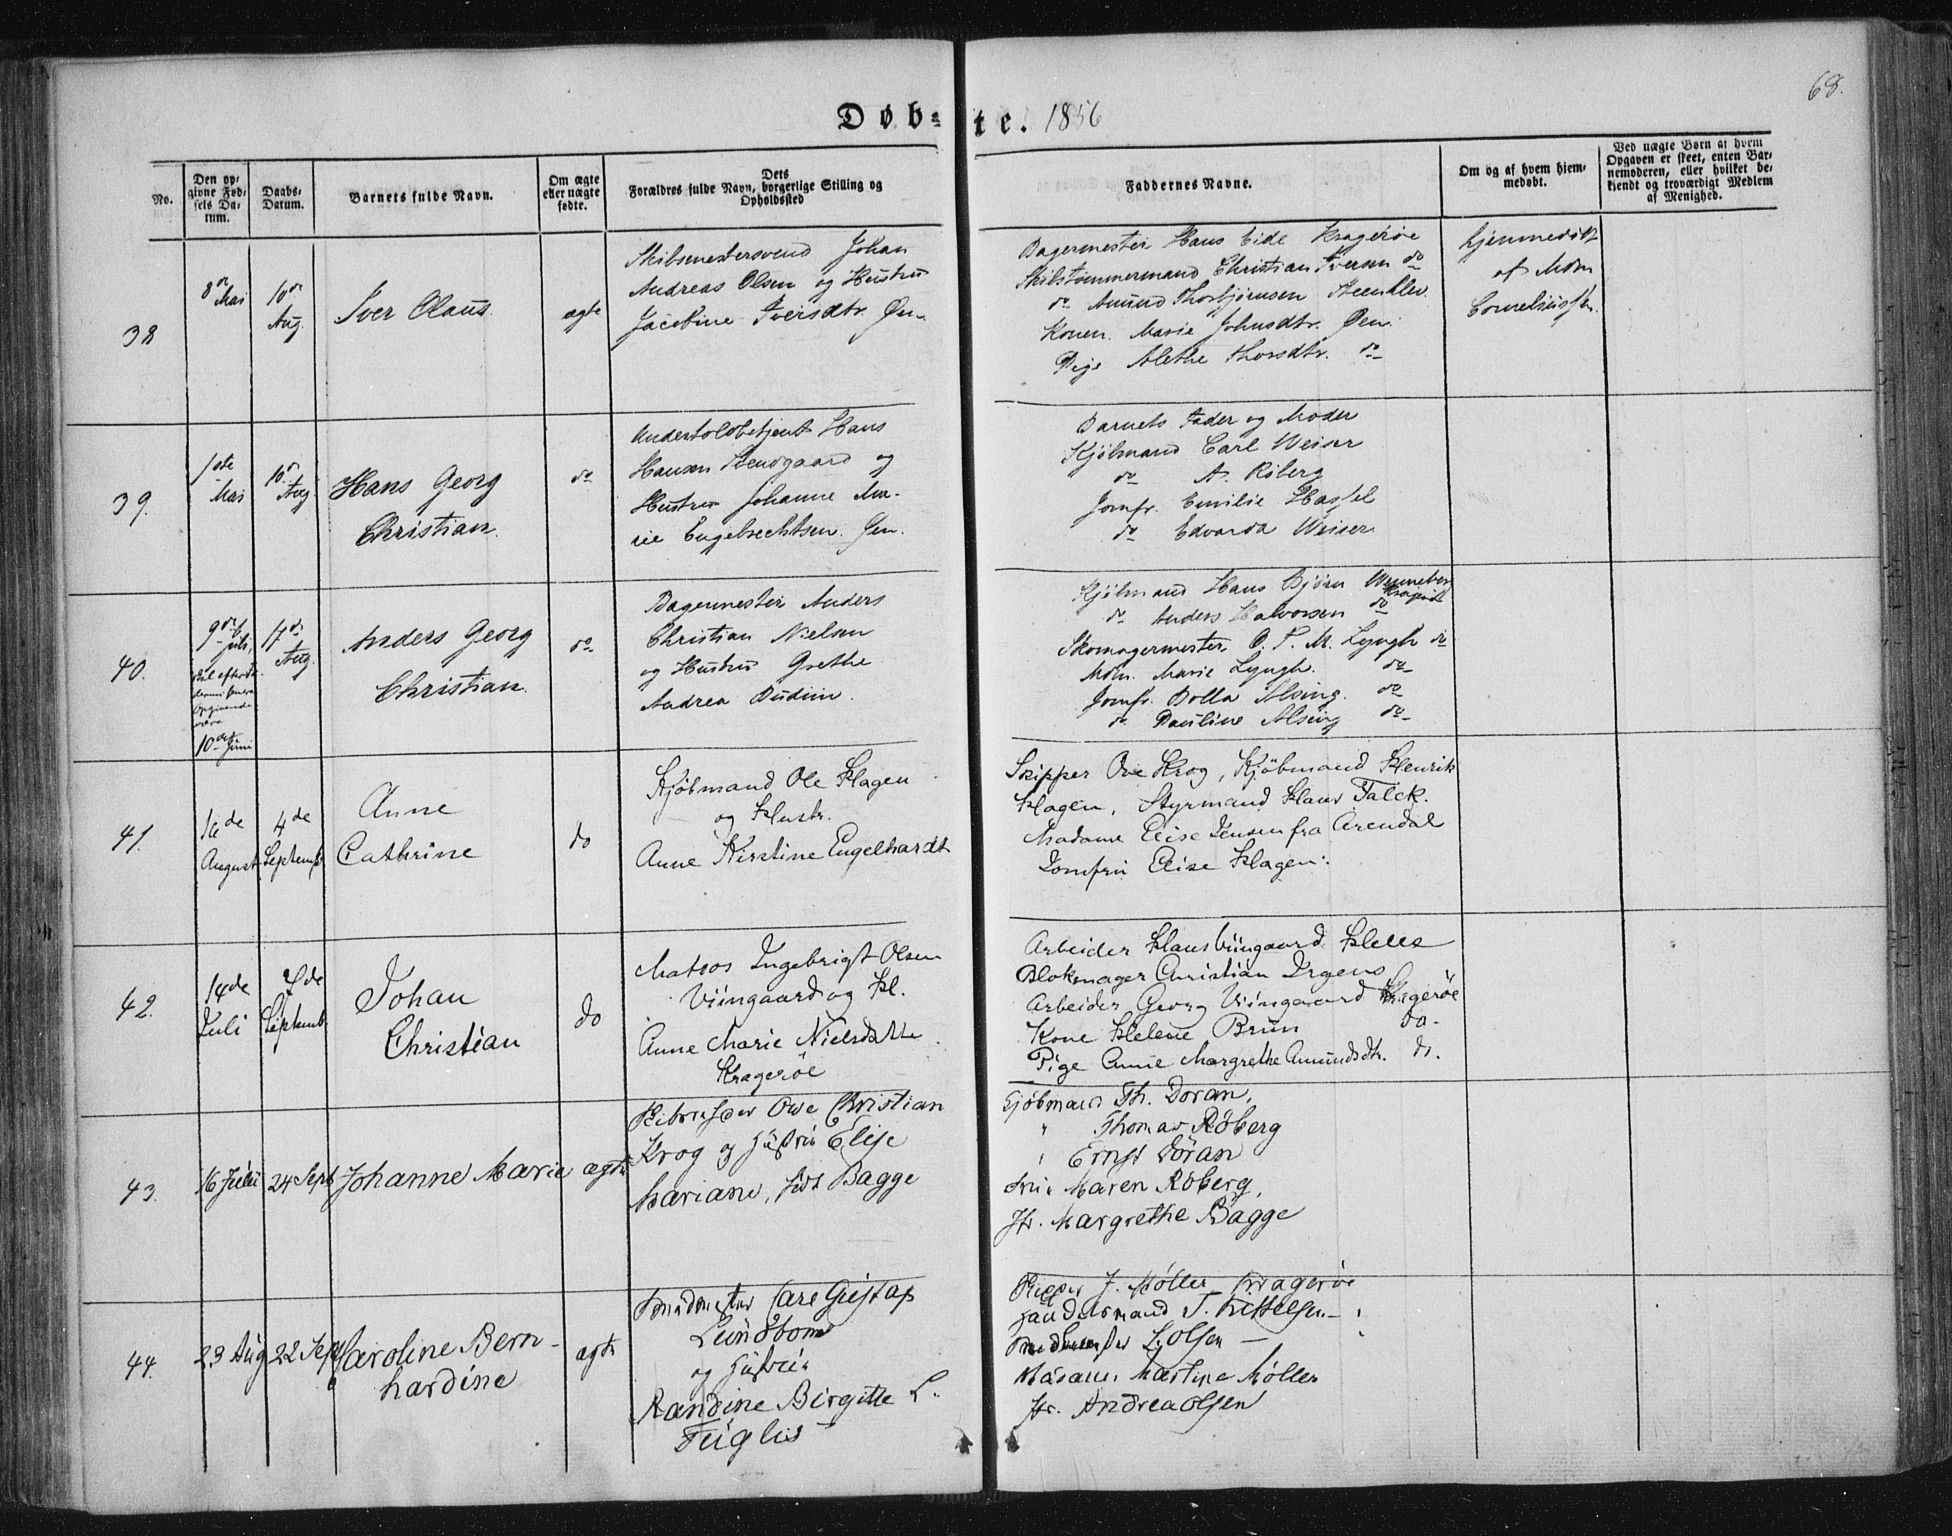 68.
Døb-te. 1856
No.
Den op-
givne Fød-
sels Da-
tum.
Daabs-
Datum.
Barnets fulde Navn.
Om ægte
eller uægte
fødte.
Dets
Forældres fulde Navn, borgerlige Stilling og
Opholdssted
Faddernes Navne.
Om og af hvem hjem-
medøbt.
Ved uægte Børn af hvem
Opgaven er skeet, enten Bar-
nemoderen, eller hvilket be-
kjendt og troværdigt Medlem
af Menighed.
38
8de
Mai
10de
Aug.
Iver Claus
ægte
Skibsmestersvend Johan
Andreas Olsen og Hustru
Jacobine Iversdtr. Øen.
Bagermester Hans Eide Kragerøe
Skibstømmermand Christian Iversen do
do Amund Thorbjørnsen
Konen Marie Johnsdtr. Øen.
Pige Alethe Thorsdtr. do
hjemmedøbt
af Mdm
39.
1ste
Mai
10de
Aug
Hans Georg
Christian.
do
Undertoldbetjent Hans
Hansen Stendgaard og
Hustru Johanne Ma-
rie Engebrechtsen. Øen.
Barnets Fader og Moder
Kjøbmand Carl Weiser
do A. Röberg
Jomfr. Emilie Hassel
do Edvarda Weiser
40.
9de
Juli,
10de Juni
17de
Aug.
Anders Georg
Christian.
do
Bagermester Anders
Christian Nielsen
og Hustru Grethe
Andrea
Kjøbmand Hans Bjørn
Kragerøe
do Anders Halvorsen do
Skomagermester O. T. M. Lyngh do
Mdm. Marie Lyngh. do
Jomfr. Bolla Alsing. do
do Pauline Alsing do
41.
16de
August
4de
Septembr
Anne
Cathrine
do
Kjøbmand Ole Hagen
og Hustr.
Anne Kirstine Engelhardt
Skipper Ove Krog, Kjøbmand Henrik
Hagen, Styrmand Hans Falck.
Madame Elise Jensen fra Arendal
Jomfru Elise Hagen.
42.
14de
Juli
7de
Septemb
Johan
Christian
do
Matros Ingebrigt Olsen
Viingaard og H.
Anne Marie Nielsdatter
Kragerøe
Arbeider Hans Viingaard Helle
Blokmager Christian Irgens
Arbeider Georg Viingaard Kragerøe
Kone Helene Brun do.
Pige Anne Margrethe Amundsdtr. do.
43.
16 Julii
24 Sept
Johanne Marie
ægte
Ove Christian
Krog og Hustru Elise
Mariane, født Bagge
Kjøbmand Th. Doran,
" Thomas Röberg
" Ernst Döran
Fru Maren Röberg,
Jfr. Margrethe Bagge
44.
23 Aug
22 Sept
Caroline Bern-
hardine
ægte
Carl Gustav
Lundbom
og Hustru
Randine Birgitte L.
Fuglis
Skipper J. Møller Kragerøe
Handelsmand T. Kittelsen —
L. Olsen —
Madame Martine Møller
Jfr. Andrea Olsen